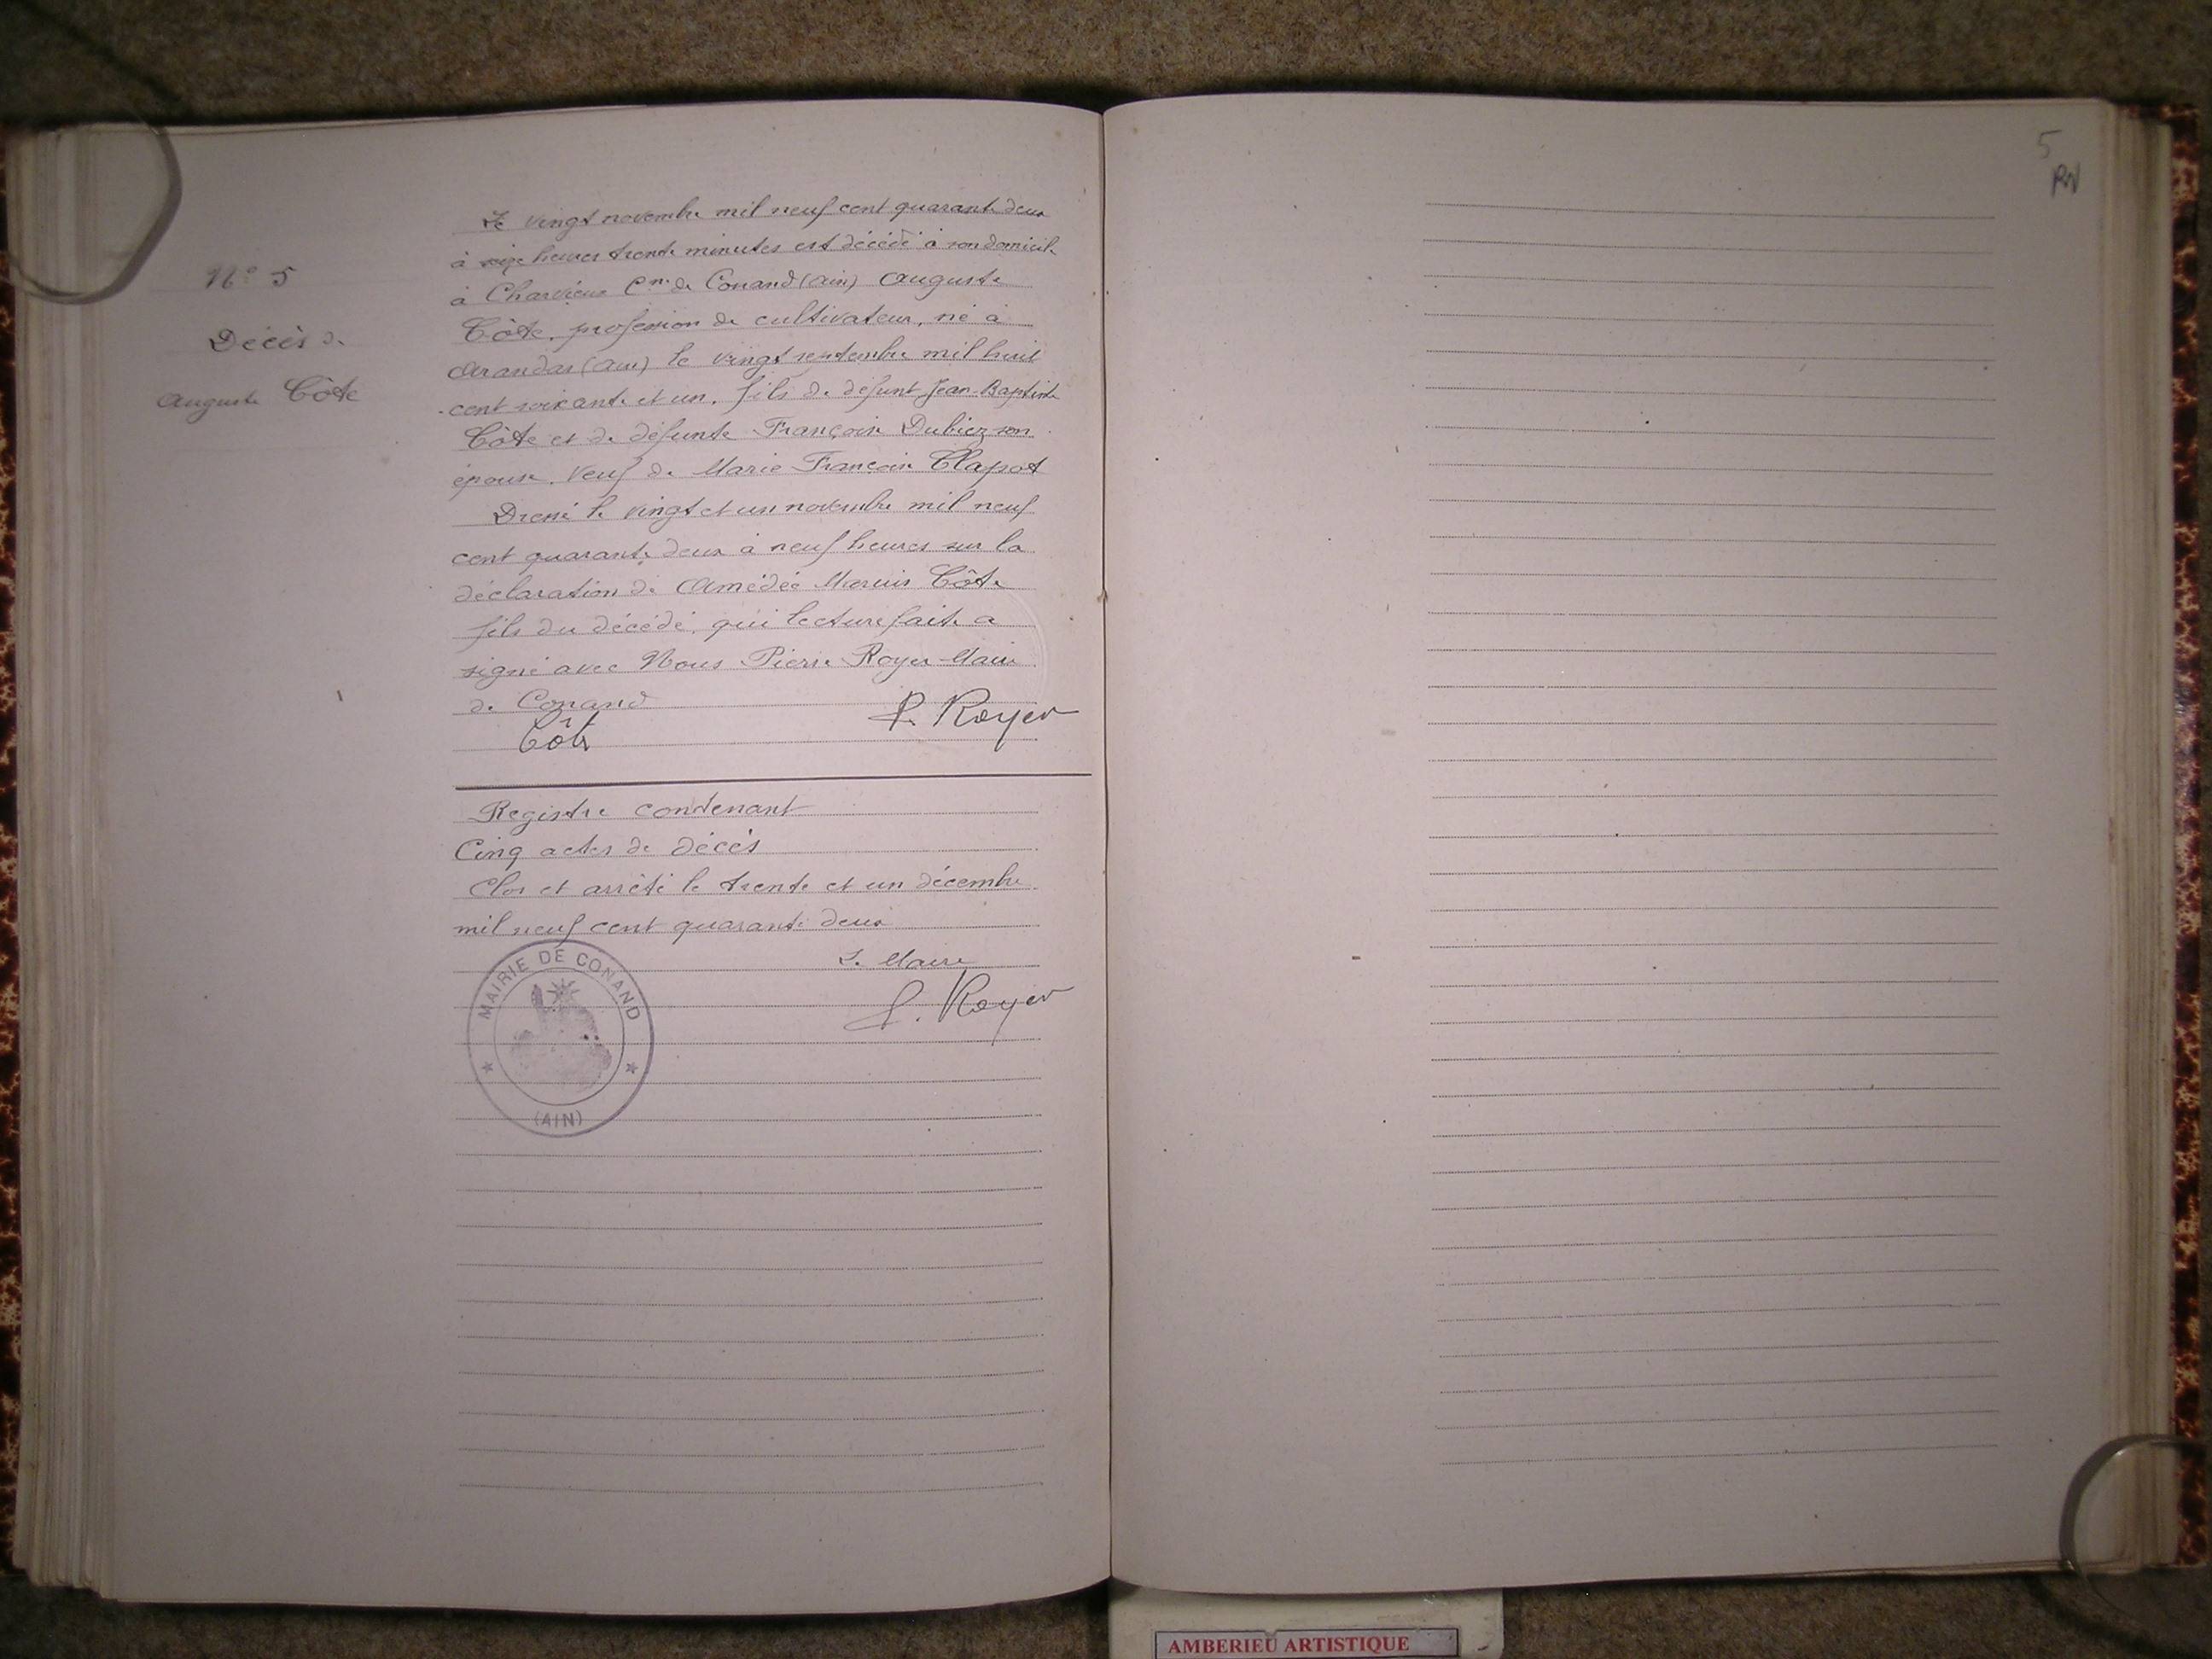 5
RV
N° 5
Décès de
Auguste Côte
Le vingt novembre mil neuf cent quarante deux
à seize heures trente minutes est décédé à son domicile
à Charvieux Cne de Conand (Ain) Auguste
Côte, profession de cultivateur, né à
Arandas (Ain) le vingt septembre mil huit
cent soixante et un, fils de défunt Jean-Baptiste
Côte et de défunte Françoise Dubiez son
épouse. Veuf de Marie Françoise Clapot
Dressé le vingt et un novembre mil neuf
cent quarante deux à neuf heures sur la
déclaration de Amédée Marius Côte
fils du décédé, qui lecture faite a
signé avec Nous Pierre Royer Maire
de Conand
Côte P. Royer
Registre contenant
Cinq actes de décès
Clos et arrêté le trente et un décembre
mil neuf cent quarante deux
Le Maire
P. Royer
MAIRIE DE CONAND
(AIN)
AMBERIEU ARTISTIQUE